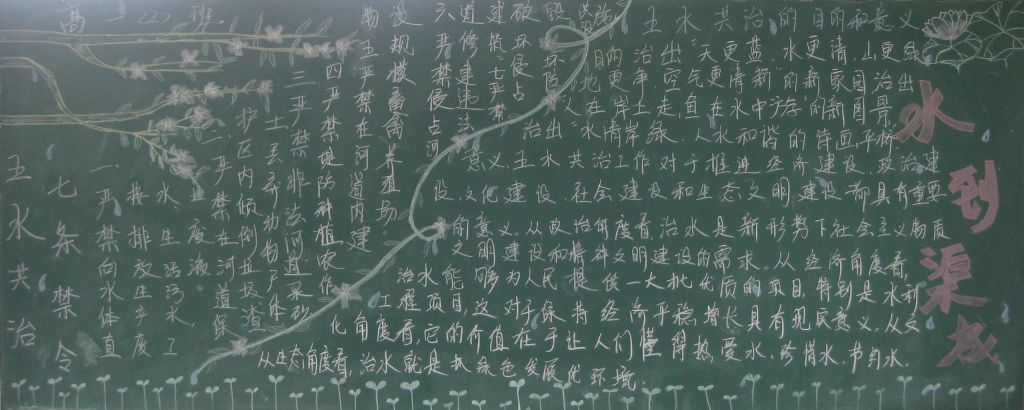 高一<2>班
五水共治
七条禁令
一严禁向水体直
接排放生产废
水生活污水,工
业废液。
二严禁在河道保
护区内倾倒垃圾渣
土丢弃动物尸体。
三严禁非法河道采砂
四严禁堤防种植农作
物五严禁在河道内建
设规模畜禽养殖场。
六严禁侵占河
道修建违法
建筑。七严禁
破坏侵占
水到渠成
五水共治的目的和意义
目的:治出"天更蓝,水更清,山更绿,
地更净,空气更清新"的新家园治出
"人在岸上走,鱼在水中游"的新图景,
治出"水清岸绿、人水和谐的诗画平桥
意义:五水共治工作对于推进经济建设、政治建
设、文化建设、社会建设和生态文明建设都具有重要
的意义,从政治角度看,治水是新形势下社会主义物质
文明建设和精神文明建设的需求。从经济角度看,
治水能够为人民提供一大批优质的项目,特别是水利
工程项目,这对于保持经济平稳增长具有现实意义,从文
化角度看,它的价值在于让人们懂得热爱水,珍惜水,节约水.
从生态角度看,治水就是抓绿色发展优环境.